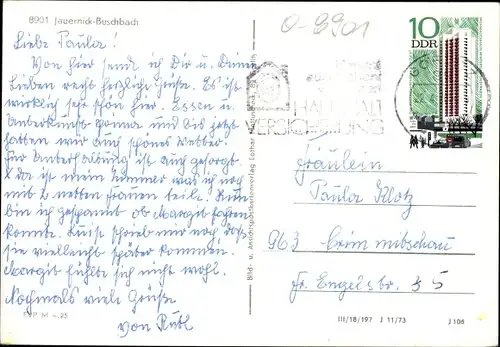 8901 Jauernick-Buschbach
Liebe Paula!
Von hier send ich Dir u. Deinen
Lieben recht herzliche Grüße. Es ist
wirklich sehr schön hier. Essen u.
Unterkunft prima und bis jetzt
hatten wir auch schönes Wetter.
Für Unterhaltung ist auch gesorgt.
mein Zimmer
mit 2 netten Frauen teile. Nun
bin ich gespannt ob Margit fahren
konnte. Luise schrieb mir noch, daß
sie vielleicht später kommen.
Margit fühlte sich nicht wohl.
Nochmals viele Grüße
von Ruth
EVP M -.25
Bild- u. Ansichtskartenverlag Lothar
0-8901
10
DDR
HAUSHALT
VERSICHERUNG
Fräulein
Paula Klotz
963 Crimmitschau
Fr. Engelsstr. 35
III/18/197 J 11/73
J 106